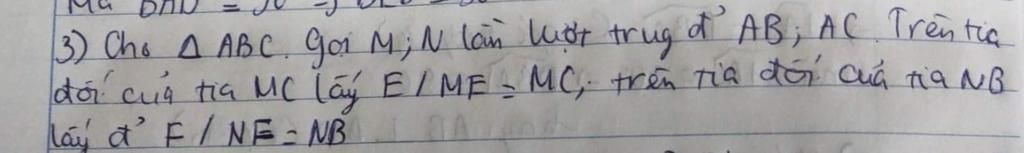 3) Cho Δ ABC. Gọi M; N lần lượt trug đ' AB; AC. Trên tia
đối của tia MC lấy E / ME = MC; trên tia đối của tia NB
lấy đ' F / NF = NB